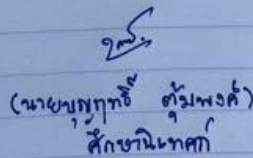 (นายบุญฤทธิ์ ตุ้มพงค์)
ศึกษานิเทศก์